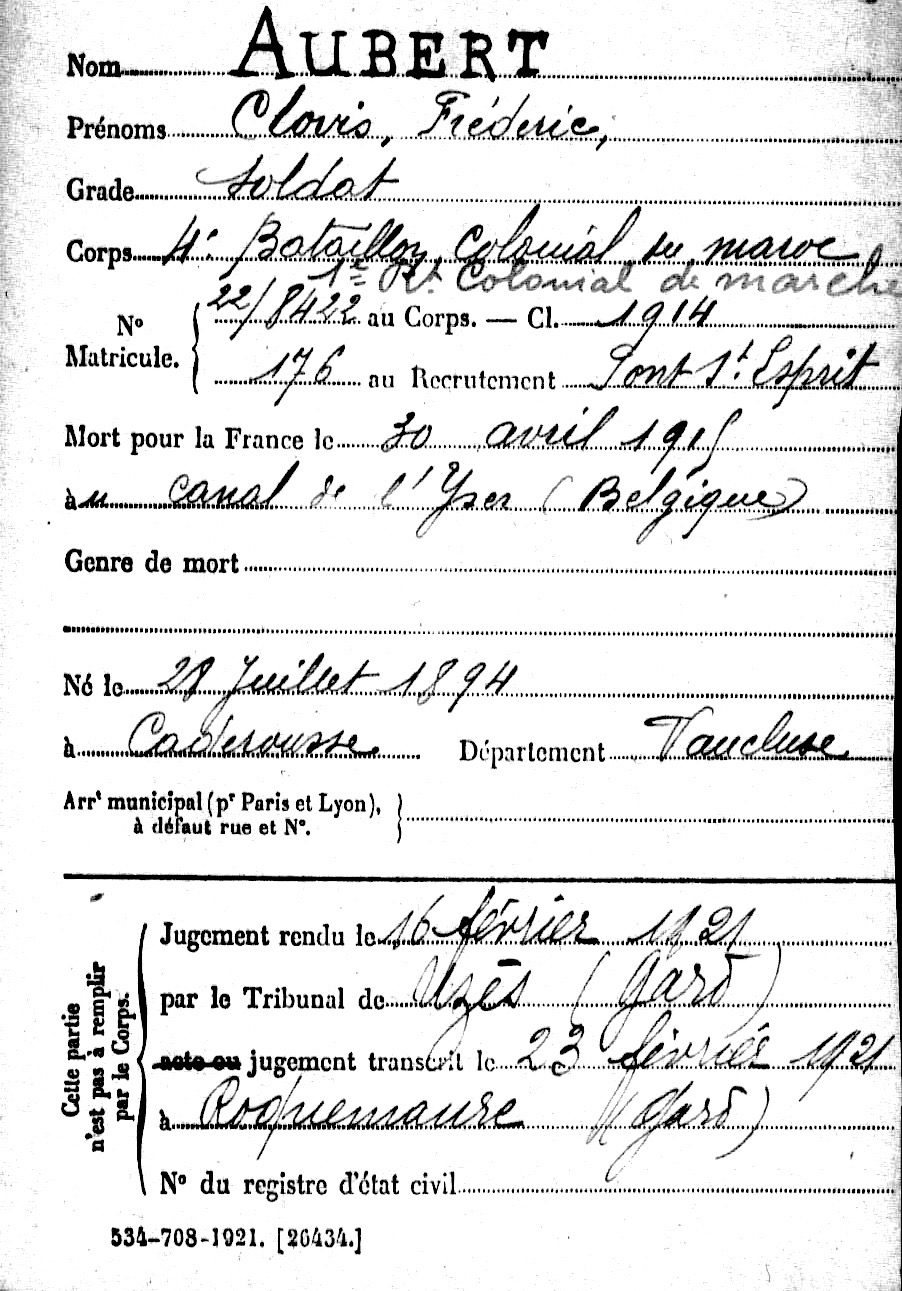 Nom AUBERT
Prénoms Clovis, Fréderic,
Grade Soldat
Corps 4e Bataillon Colonial du maroc
1e Rt Colonial de marche
No Matricule. { 22/8422 au Corps. — Cl. 1914
176 au Recrutement Pont St Esprit
Mort pour la France le 30 avril 1915
àu canal de l'Yser (Belgique)
Genre de mort
Né le 28 Juillet 1894
à Caderousse Département Vaucluse
Arrt municipal (pr Paris et Lyon),
à défaut rue et No.
Cette partie n'est pas à remplir par le Corps.
Jugement rendu le 16 février 1921
par le Tribunal de Uzès (Gard)
acte ou jugement transcrit le 23 février 1921
à Roquemaure (Gard)
No du registre d'état civil
534-708-1921. [26434.]